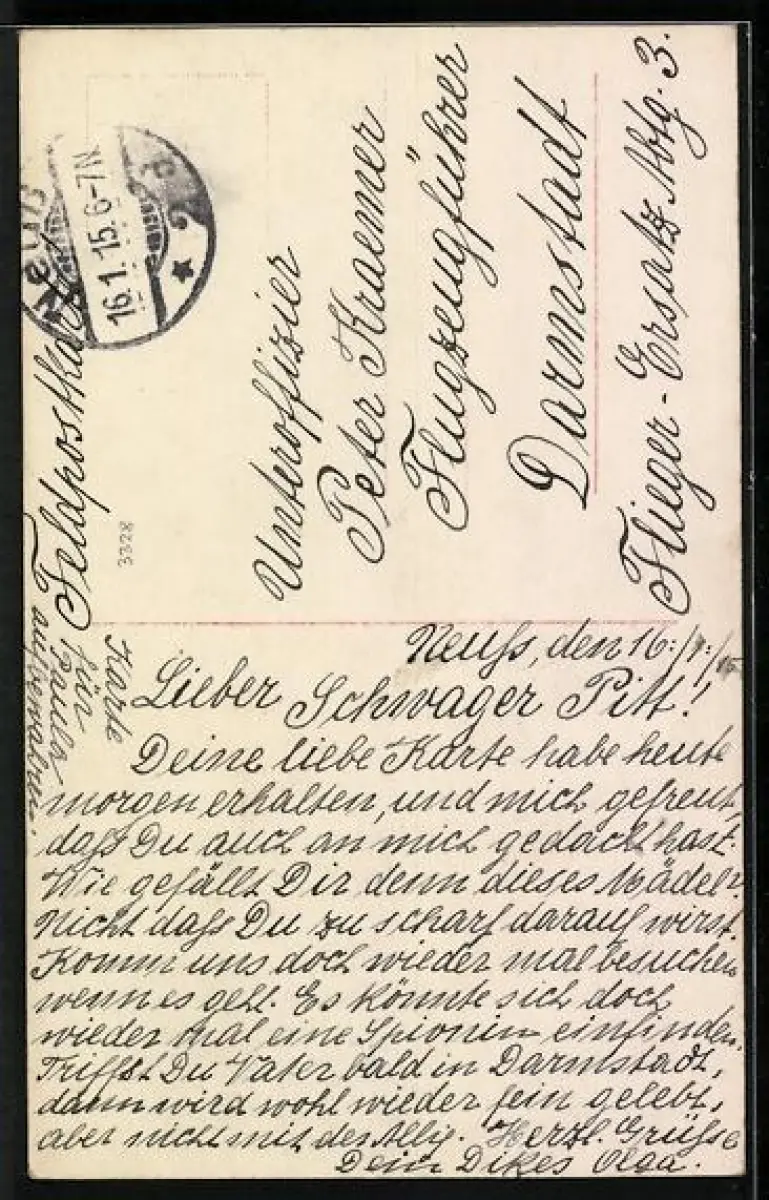 Feldpostkarte
Neuß
16.1.15.6-7N.
3328
Unteroffizier
Peter Kraemer
Flugzeugführer
Darmstadt
Flieger-Ersatz Abtlg. 3.
Karte
für
Paula
aufbewahren.
Neuss, den 16./1./15
Lieber Schwager Pitt!
Deine liebe Karte habe heute
morgen erhalten, und mich gefreut,
dass Du auch an mich gedacht hast.
Wie gefällt Dir denn dieses Mädel?
Nicht dass Du zu scharf darauf wirst.
Komm uns doch wieder mal besuchen
wenn es geht. Es könnte sich doch
wieder mal eine Spionin einfinden.
Triffst Du Vater bald in Darmstadt,
dann wird wohl wieder fein gelebt,
aber nicht mit der Herzl. Grüsse
Dein Dikes Olga.